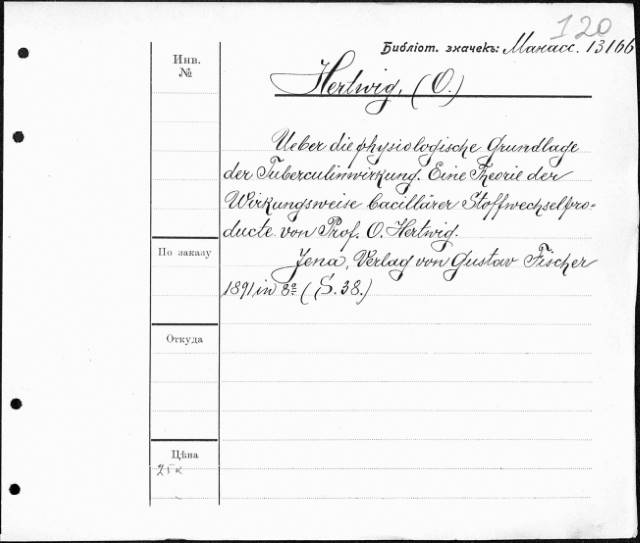 120
Библіот. значекъ: Манасс. 13166
Инв.
№
Hertwig, (O.)
Ueber die physiologische Grundlage
der Tuberculinwirkung. Eine Theorie der
Wirkungsweise bacillärer Stoffwechselpro-
ducte von Prof. O. Hertwig.
По заказу
Jena, Verlag von Gustav Fischer
1891, in 8º (S. 38.)
Откуда
Цѣна
25 к